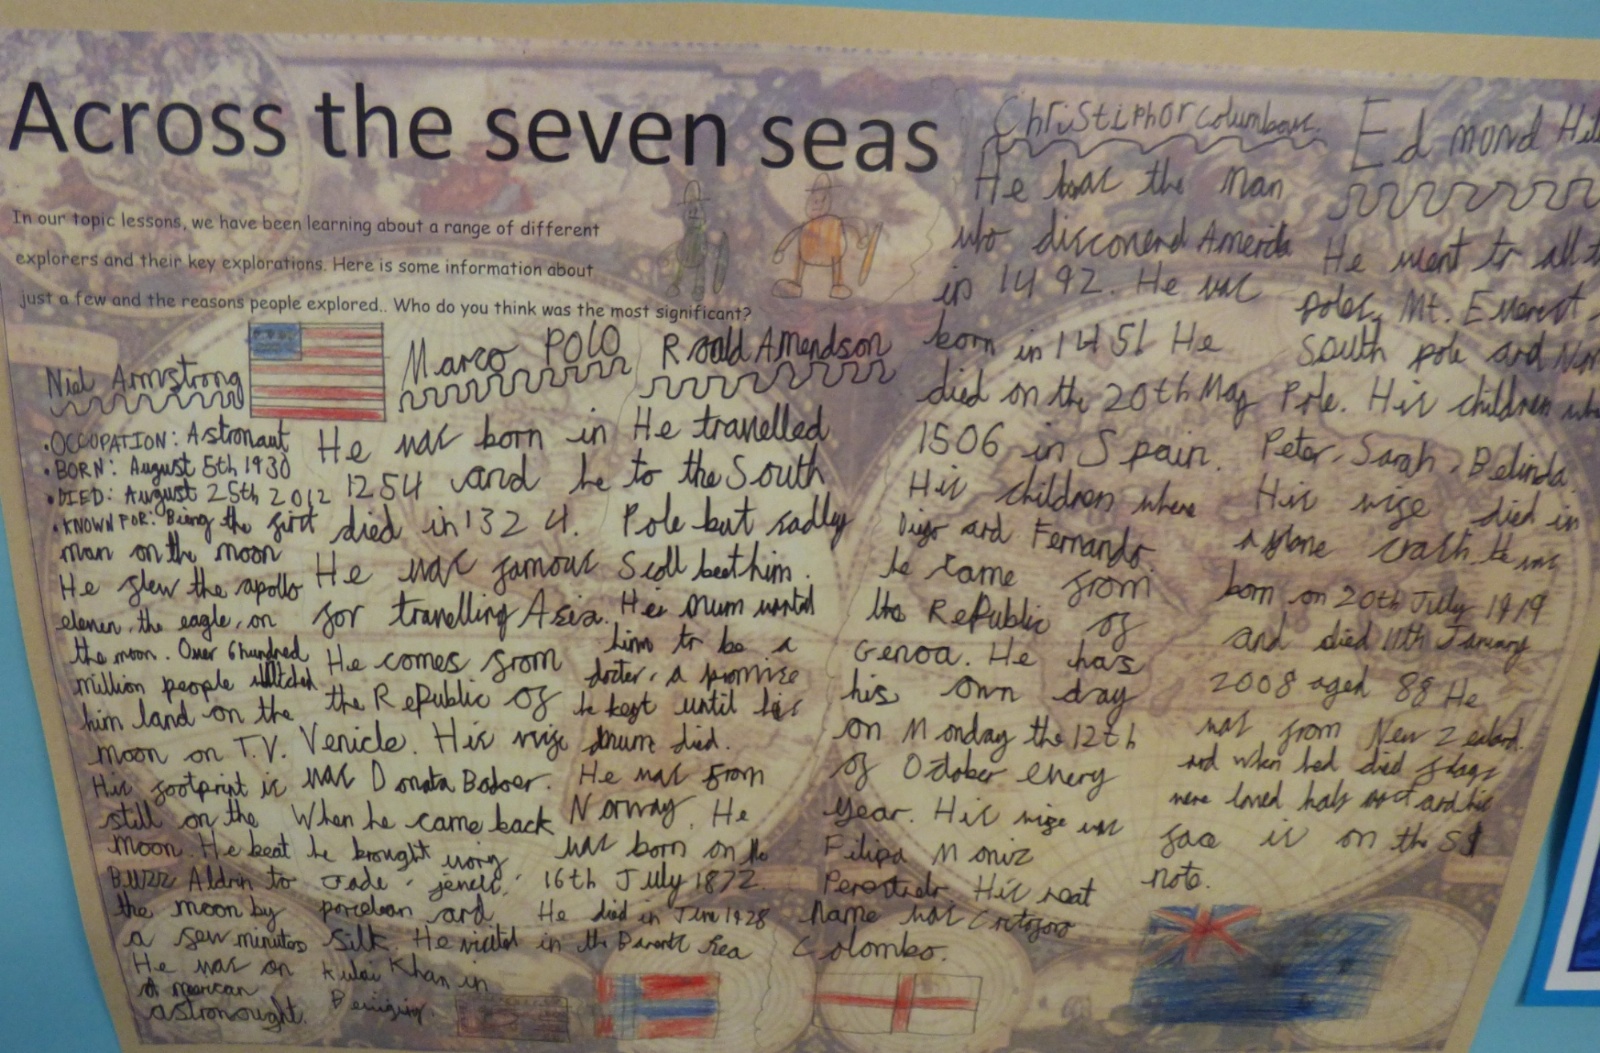 Across the seven seas
In our topic lessons, we have been learning about a range of different
explorers and their key explorations. Here is some information about
just a few and the reasons people explored.. Who do you think was the most significant?
Niel Armstrong
• OCCUPATION: Astronaut
• BORN: August 5th 1930
• DIED: August 25th 2012
• KNOWN FOR: Being the first
man on the moon
He flew the apollo
eleven, the eagle, on
the moon. Over 6 hundred
million people watched
him land on the
moon on T.V.
His footprint is
still on the
moon. He beat
Buzz Aldrin to
the moon by
a few minutes
He was an
American
astronought.
Marco POLO
He was born in
1254 and he
died in 1324.
He was famous
for travelling Asia.
He comes from
the Republic of
Venicle. His wife
was Donata Badoer.
When he came back
he brought
Jade,
porcelean and
silk. He visited
Kulai Khan in
Roald Amendson
He travelled
to the South
Pole but sadley
Scott beet him.
His mum wanted
him to be a
docter, a promise
he kept until his
mum died.
He was from
Norway. He
was born on the
16th July 1872.
He died in June 1928
in the Sea
Christiphor Columbous
He was the man
who discovered America
in 1492. He was
born in 1451 He
died on the 20th May
1506 in Spain.
His children where
Diego and Fernando.
he came from
the Republic of
Genoa. He has
his own day
on Monday the 12th
of October every
year. His wife was
Filipa Moniz
His
name was
Colombo.
Edmond
He went to all
poles, Mt. Everest,
South pole and
Pole. His children
Peter, Sarah, Belinda.
His wife died in
a plane crash. he was
born on 20th July 1919
and died 11th January
2008 aged 88 He
was from New Zealand.
and when died flags
were half and his
face is on the $5
note.